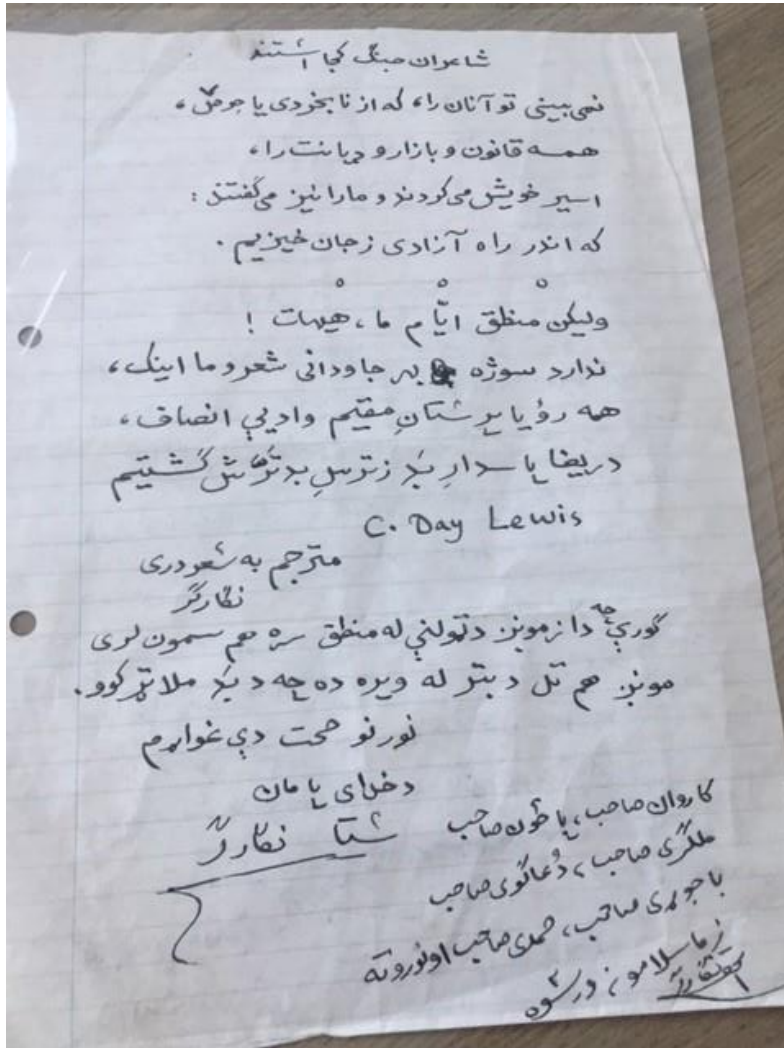 شاعران جنگ کجا استند
نمی بینی تو آنان را، که از نابخردی یا حرص،
همه قانون و بازار و دیانت را،
اسیر خویش می کردند و ما را نیز می گفتند :
که اندر راه آزادی ز جان خیزیم .
° ° °
ولیکن منطق ایّام ما، هیهات !
ندارد سوژه به جاودانی شعر و ما اینک،
همه رؤیا پرستانِ مقیم وادیي انصاف،
دریغا پاسدارِ بَد ز ترسِ بدترَش گشتیم
C. Day Lewis
مترجم به شعر دری
نگارگر
گورې چه دا زمونږ د ټولنې له منطق سره هم سمون لری
مونږ هم تل د بتر له ویره ده چه د بَد ملاتړ کوو.
نور نو صحت دې غواړم
د خدای پامان
ستا نگارگر
کاروان صاحب، پاڅون صاحب
ملگری صاحب، دُعاگوی صاحب
باجوړی صاحب، صمدی صاحب او نورو ته
زما سلامونه ورسوه
نگارگر